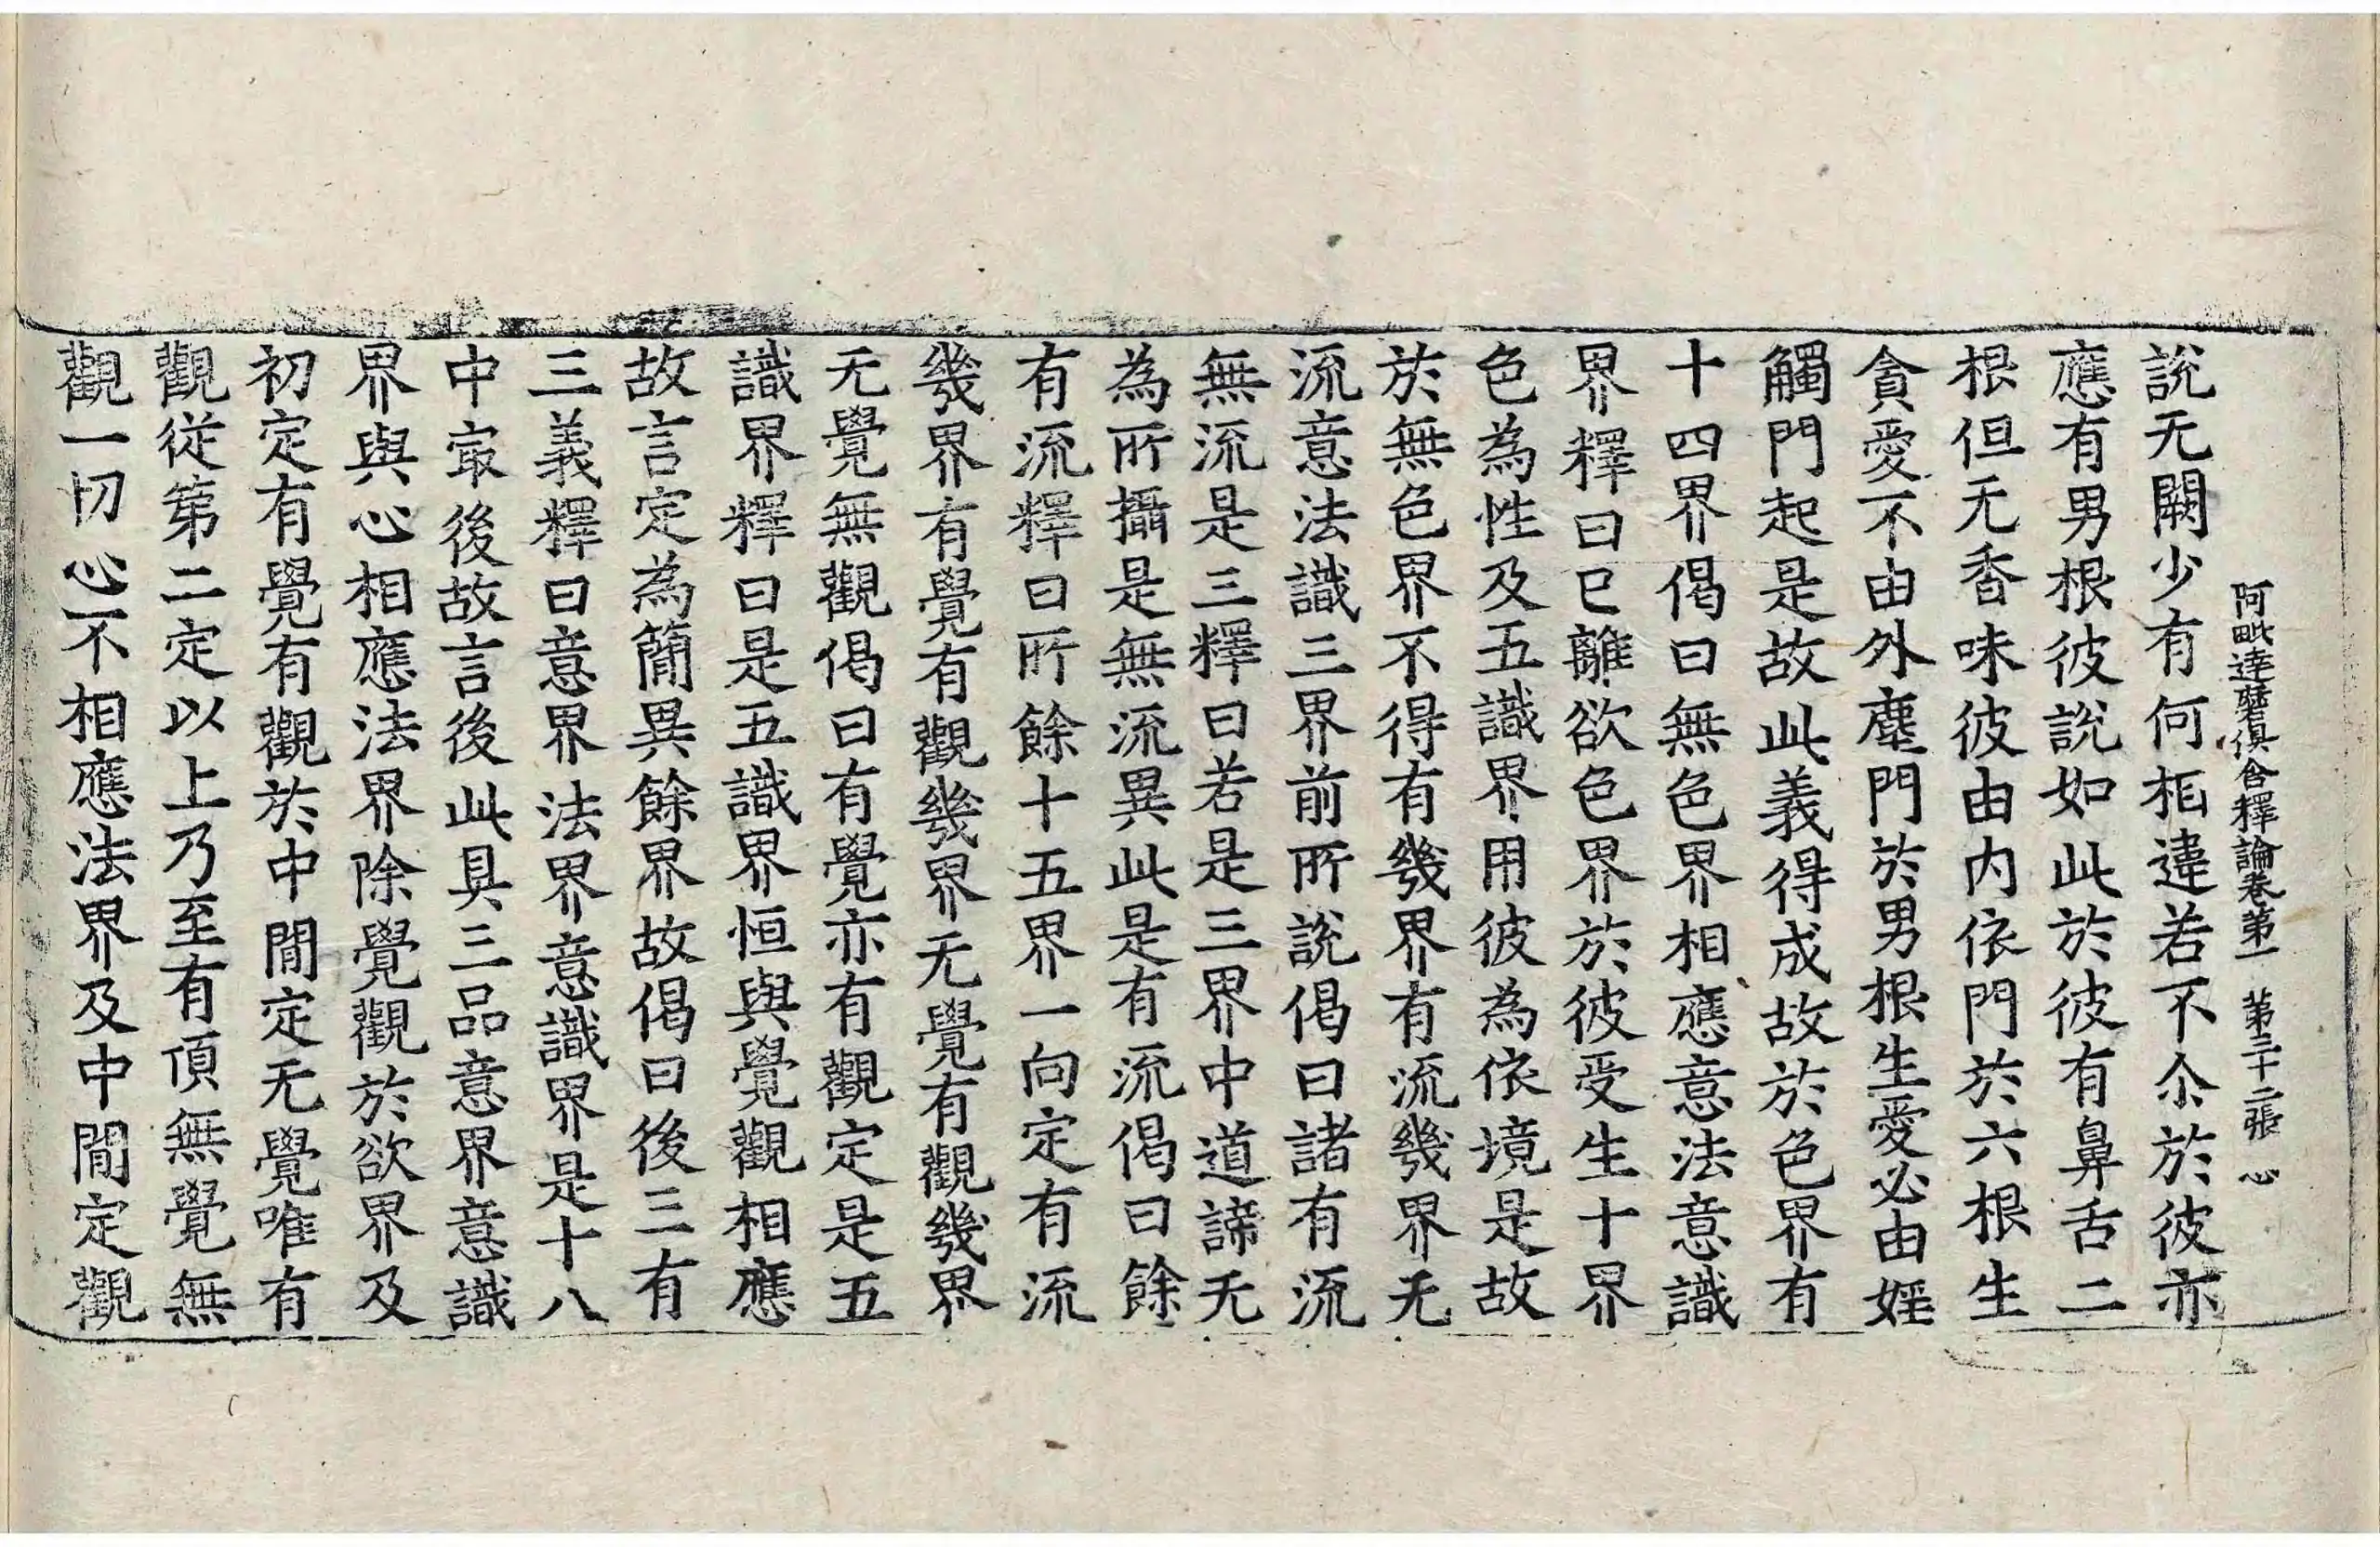 阿毗達磨俱舍釋論卷第一 第三十二張 心
說无闕少有何相違若不尒於彼亦
應有男根彼說如此於彼有鼻舌二
根但无香味彼由内依門於六根生
貪愛不由外塵門於男根生愛必由婬
觸門起是故此義得成故於色界有
十四界偈曰無色界相應意法意識
界釋曰已離欲色界於彼受生十界
色為性及五識界用彼為依境是故
於無色界不得有幾界有流幾界无
流意法識三界前所說偈曰諸有流
無流是三釋曰若是三界中道諦无
為所攝是無流異此是有流偈曰餘
有流釋曰所餘十五界一向定有流
幾界有覺有觀幾界无覺有觀幾界
无覺無觀偈曰有覺亦有觀定是五
識界釋曰是五識界恒與覺觀相應
故言定為簡異餘界故偈曰後三有
三義釋曰意界法界意識界是十八
中冣後故言後此具三品意界意識
界與心相應法界除覺觀於欲界及
初定有覺有觀於中間定无覺唯有
觀從第二定以上乃至有頂無覺無
觀一切心不相應法界及中間定觀